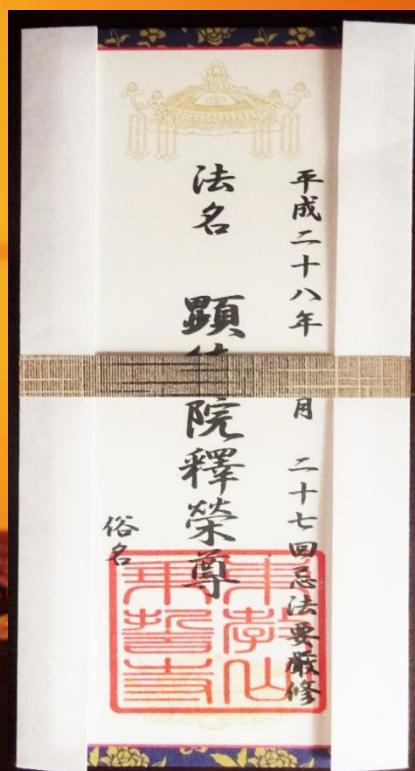 平成二十八年 月 二十七回忌法要厳修
法名 顕 院釋榮尊
俗名